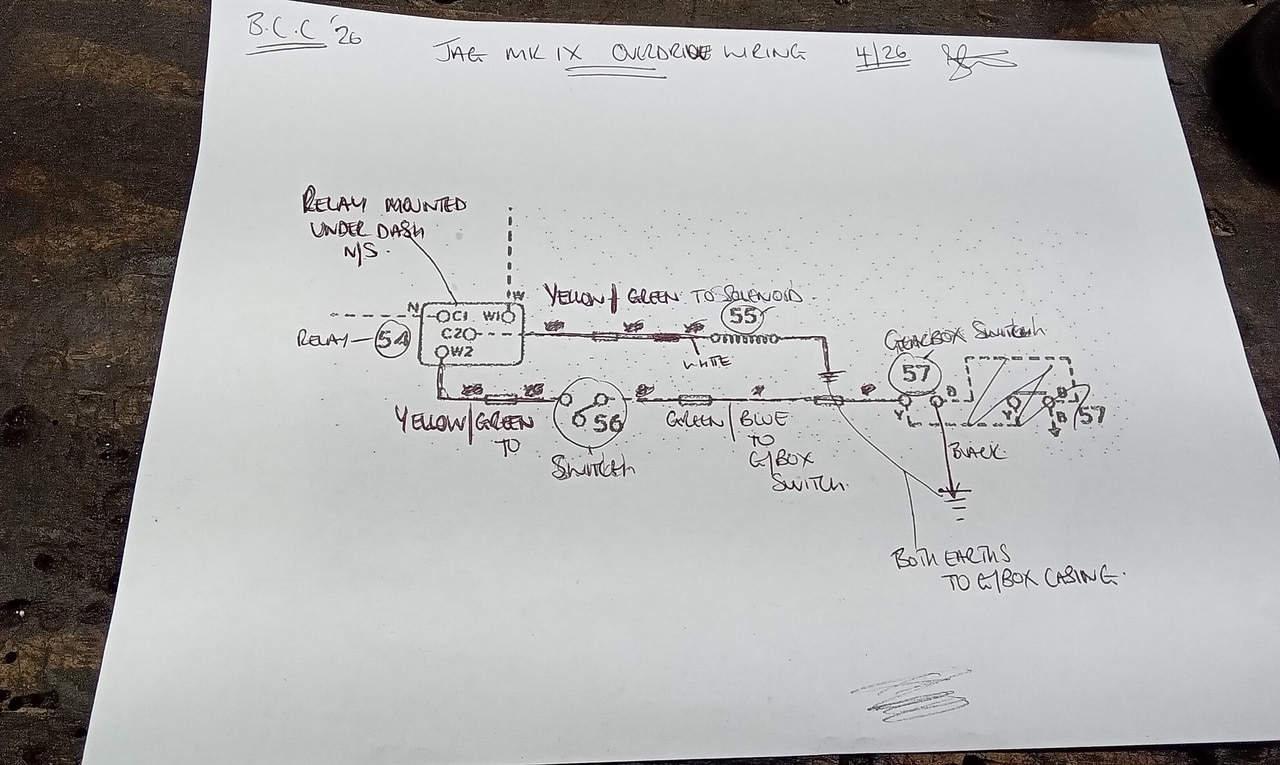 B.C.C '26
JAG MK IX OVERDRIVE WIRING 4/26
RELAY MOUNTED
UNDER DASH
N/S.
N
W
YELLOW/GREEN TO SOLENOID.
C1 W1
C2
W2
RELAY 54
55
WHITE
GEARBOX SWITCH
57
Y
B
Y
B
B
57
56
YELLOW/GREEN
TO
SWITCH
GREEN/BLUE
TO
G/BOX
SWITCH.
BLACK
BOTH EARTHS
TO G/BOX CASING.